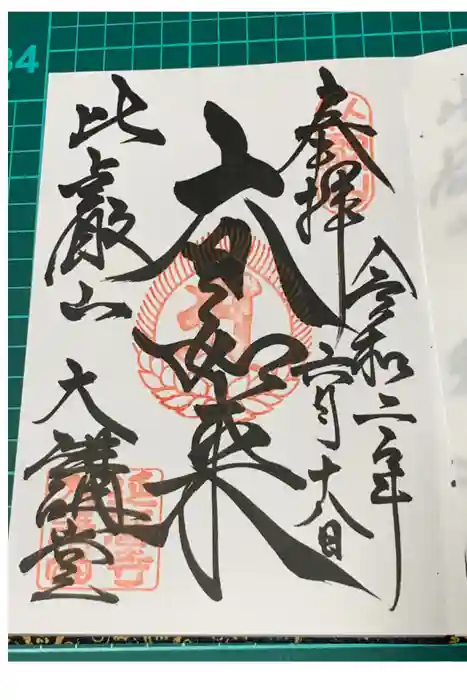 奉拝
令和二年
六月十八日
大日如来
比叡山 大講堂